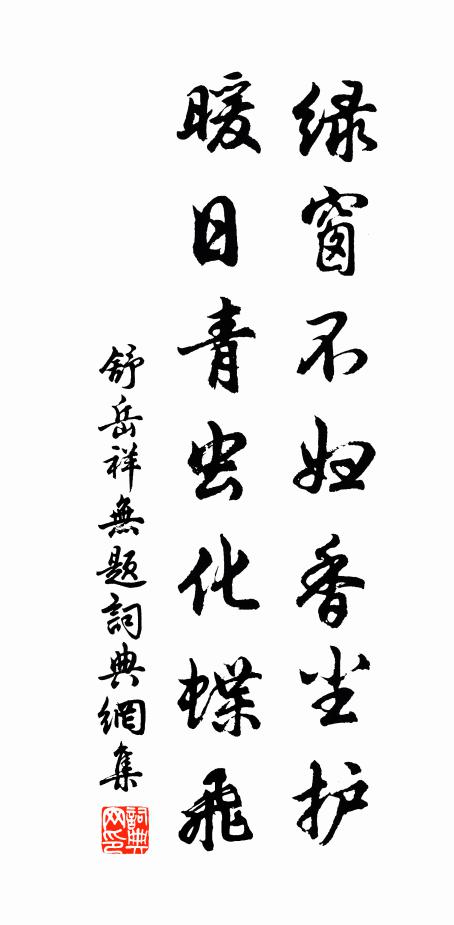 绿窗不妇香尘护
暖日青虫化蝶飛
舒岳祥無题詞典網集
詞典网印